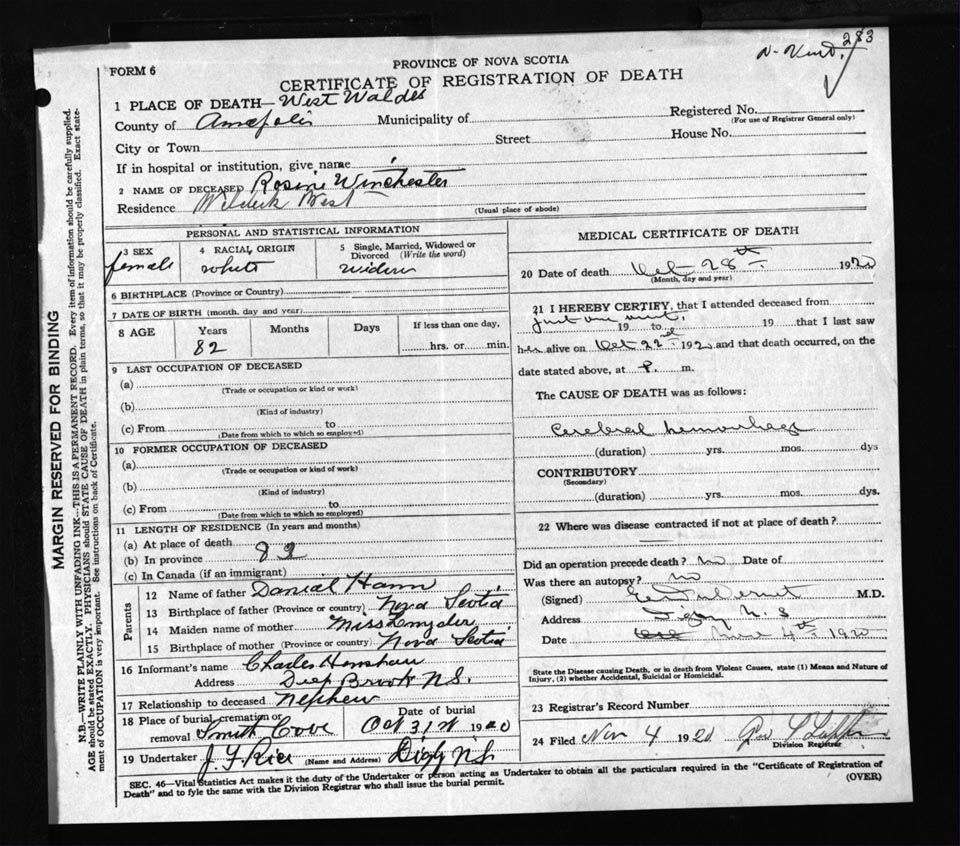 283
N. Kent.
PROVINCE OF NOVA SCOTIA
FORM 6
CERTIFICATE OF REGISTRATION OF DEATH
1 PLACE OF DEATH—West Waldec
County of Annapolis Municipality of Registered No.
(For use of Registrar General only)
City or Town Street House No.
If in hospital or institution, give name
2 NAME OF DECEASED Rosine Winchester
Residence Waldeck West (Usual place of abode)
PERSONAL AND STATISTICAL INFORMATION
3 SEX female
4 RACIAL ORIGIN white
5 Single, Married, Widowed or Divorced (Write the word) widow
6 BIRTHPLACE (Province or Country)
7 DATE OF BIRTH (month, day and year)
8 AGE Years Months Days If less than one day,
82 hrs. or min.
9 LAST OCCUPATION OF DECEASED
(a)
(Trade or occupation or kind or work)
(b)
(Kind of industry)
(c) From to
(Date from which to which so employed)
10 FORMER OCCUPATION OF DECEASED
(a)
(Trade or occupation or kind of work)
(b)
(Kind of industry)
(c) From to
(Date from which to which so employed)
11 LENGTH OF RESIDENCE (In years and months)
(a) At place of death
(b) In province 82
(c) In Canada (if an immigrant)
Parents
12 Name of father Danial Hann
13 Birthplace of father (Province or country) Nova Scotia
14 Maiden name of mother Miss Snyder
15 Birthplace of mother (Province or country) Nova Scotia
16 Informant's name Charles Henshaw
Address Deep Brook N.S.
17 Relationship to deceased Nephew
18 Place of burial, cremation or removal Smith Cove
Date of burial Oct 31st 1920
19 Undertaker J. F. Rice (Name and Address) Digby N S
MEDICAL CERTIFICATE OF DEATH
20 Date of death Oct 28th 1920
(Month, day and year)
21 I HEREBY CERTIFY, that I attended deceased from
just one visit. 19 to 19 that I last saw
her alive on Oct 22nd 1920 and that death occurred, on the
date stated above, at P. m.
The CAUSE OF DEATH was as follows:
Cerebral hemorrhage
(duration) yrs. mos. dys
CONTRIBUTORY
(Secondary)
(duration) yrs. mos. dys.
22 Where was disease contracted if not at place of death?
Did an operation precede death? No Date of
Was there an autopsy? no
(Signed) M.D.
Address Digby N. S
Date Nov 4th 1920
State the Disease causing Death, or in death from Violent Causes, state (1) Means and Nature of
Injury, (2) whether Accidental, Suicidal or Homicidal.
23 Registrar's Record Number
24 Filed Nov 4 1920
Division Registrar
SEC. 46—Vital Statistics Act makes it the duty of the Undertaker or person acting as Undertaker to obtain all the particulars required in the "Certificate of Registration of
Death" and to fyle the same with the Division Registrar who shall issue the burial permit. (OVER)
MARGIN RESERVED FOR BINDING
N.B.—WRITE PLAINLY WITH UNFADING INK—THIS IS A PERMANENT RECORD. Every item of information should be carefully supplied.
AGE should be stated EXACTLY. PHYSICIANS should STATE CAUSE OF DEATH in plain terms, so that it may be properly classified. Exact state-
ment of OCCUPATION is very important. See instructions on back of Certificate.